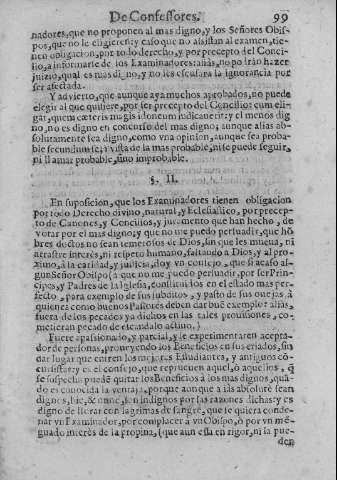 De Confessores. 99
nadores, que no proponen al mas digno, y los Señores Obis-
pos, que no le eligieren: y caso que no assistan al examen, tie-
nen obligacion, por todo derecho, y por precepto del Conci-
lio, a informarse de los Examinadores: aliàs, no podràn hazer
juizio, qual es mas digno, y no les escusara la ignorancia por
ser afectada.
Y advierto, que aunque aya muchos aprobados, no puede
elegir al que quisiere, por ser precepto del Concilio: eum eli-
gat, quem cæteris magis idoneum indicauerit: y el menos dig
no, no es digno en concurso del mas digno; aunque aliàs abs-
solutamente sea digno, como vna opinion, aunque sea proba
ble secundum se, à vista de la mas probable, ni se puede seguir,
ni llamar probable, sino improbable.
§. II.
En suposicion, que los Examinadores tienen obligacion
por todo Derecho divino, natural, y Eclesiastico, por precep
to de Canones, y Concilios, y juramento que han hecho, de
votar por el mas digno; y que no me puedo persuadir, que hõ
bres doctos no sean temerosos de Dios, sin que les mueua, ni
arrastre interès, ni respeto humano, faltando a Dios, y al pro-
ximo, à la caridad, y justicia, doy vn consejo, que si acaso al-
gun Señor Obispo (à que no me puedo persuadir, por ser Prin-
cipes, y Padres de la Iglesia, constituidos en el estado mas per-
fecto, para exemplo de sus subditos, y pasto de sus ovejas, à
quienes como buenos Pastores deben dar buẽ exemplo: aliàs,
fuera de los pecados ya dichos en las tales prouisiones, co-
meterian pecado de escandalo activo.)
Fuere apassionado, y parcial, y le experimentaren acepta-
dor de personas, proueyendo los Beneficios en sus criados, sin
dar lugar que entren los mejores Estudiantes, y antiguos cõ-
cursistas: y es el consejo, que reprueuen aquel, ò aquellos, q̃
se sospecha puedẽ quitar los Beneficios à los mas dignos, quã-
do es conocida la ventaja, porque aunque aliàs absolutè sean
dignos, hic, & nunc, son indignos por las razones dichas: y es
digno de llorar con lagrimas de sangre, que se quiera conde-
nar vn Examinador, por complacer à vn Obispo, ò por vn mẽ-
guado interès de la propina, (que aun essa en rigor, ni la pue-
den